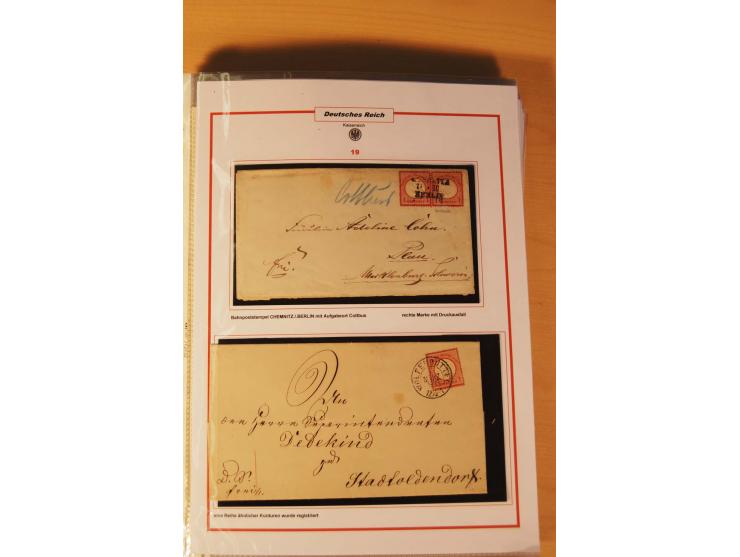 Deutsches Reich
Kaiserreich
19
Cottbus
Fräulein Adeline Cohn.
Plau
frei.
Mecklenburg-Schwerin
Bahnpoststempel CHEMNITZ./.BERLIN mit Aufgabeort Cottbus
rechte Marke mit Druckausfall
WOLFENBÜTTEL
An
den Herrn Superintendenten
Dedekind
zu
Stadtoldendorf
D. S.
frei
eine Reihe ähnlicher Kuriuren wurde registriert